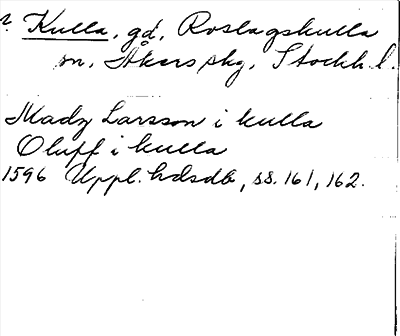 Kulla, gd, Roslagskulla
sn, Åkers skg, Stockh. l.
Madz Larsson i kulla
Oluff i kulla
1596 Uppl. hdsdb, ss. 161, 162.